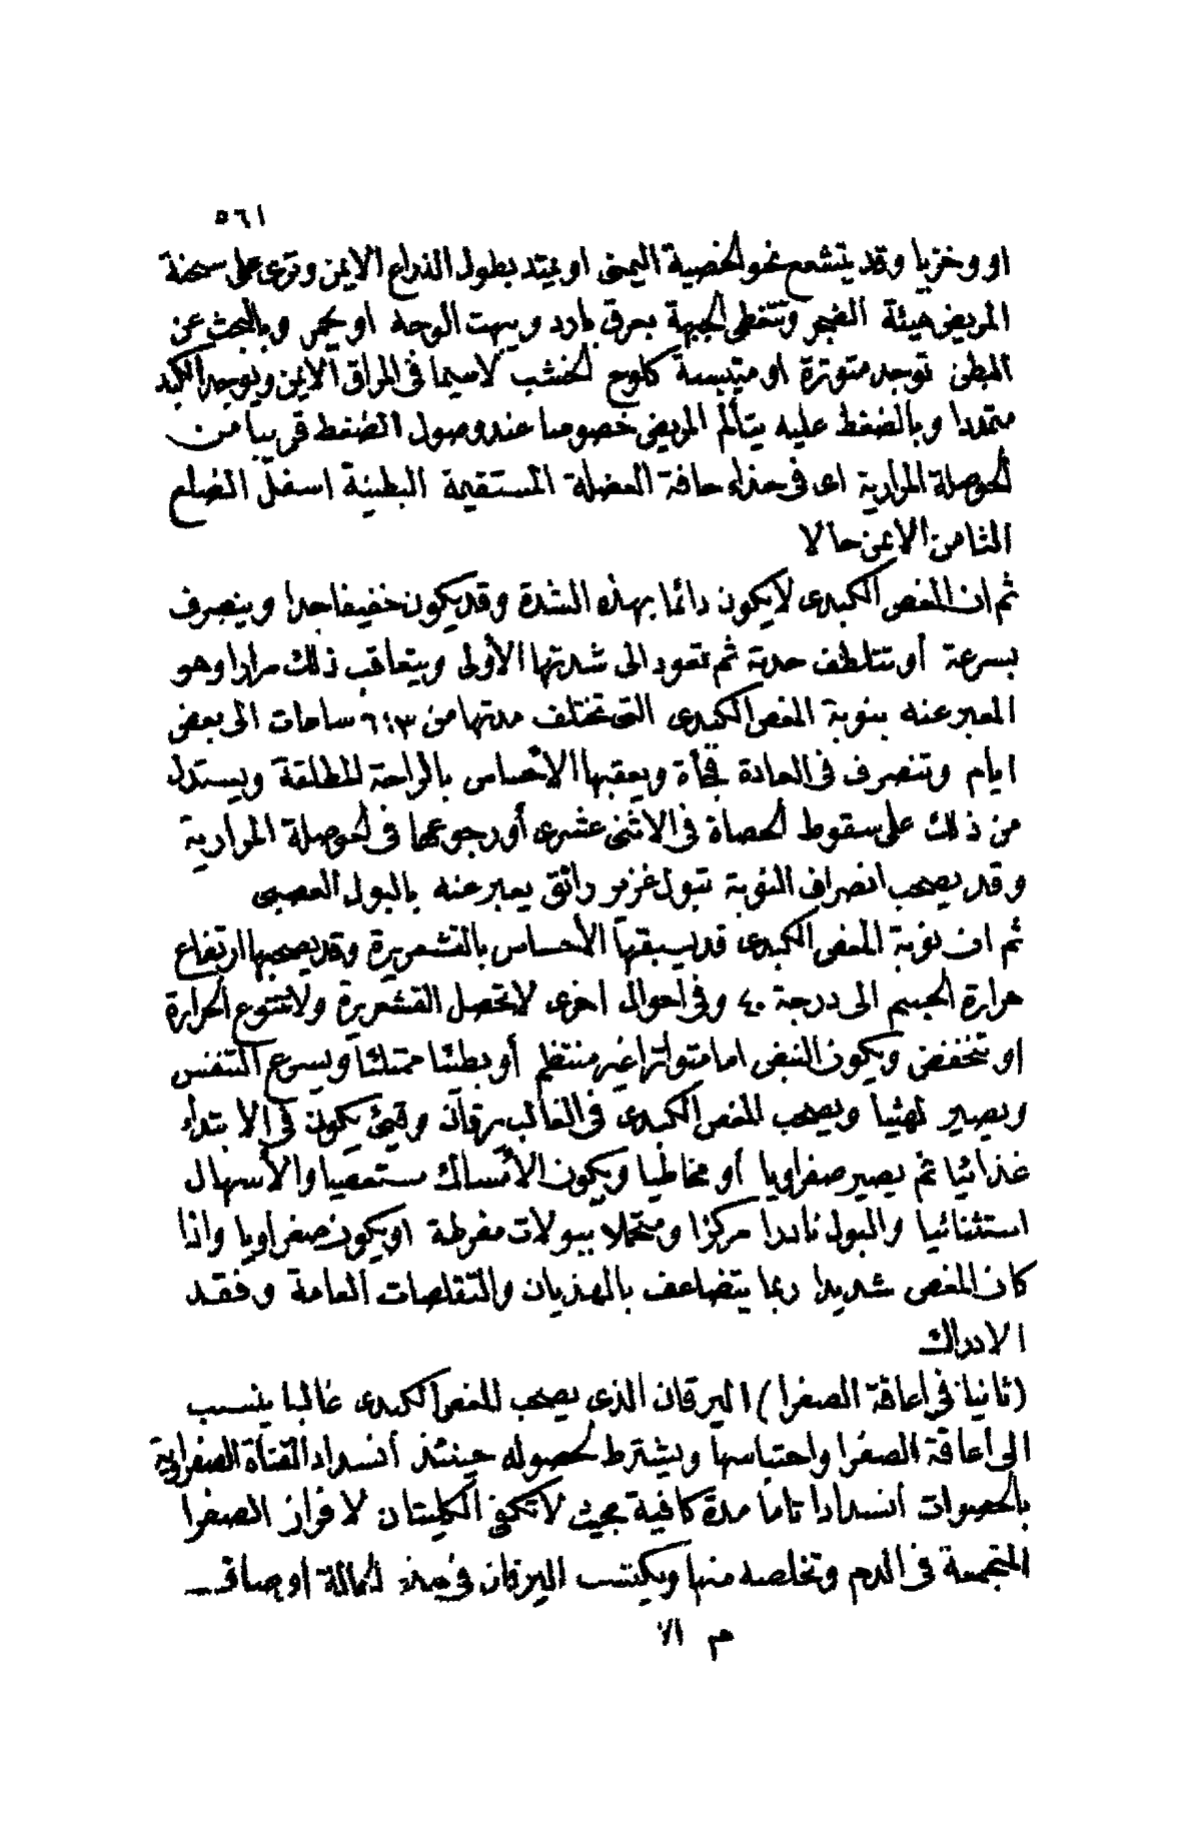 ٥٦١
او وخزيا وقد يتشعع نحو الخصية اليمنى او يمتد بطول الذراع الايمن وترى على سحنة
المريض هيئة الضجر وتتغطى الجبهة بعرق بارد ويبهت الوجه او يحمر وبالبحث عن
البطن توجد متوترة او متيبسة كلوح الخشب لاسيما فى المراق الايمن ويوجد الكبد
متمددا وبالضغط عليه يتألم المريض خصوصا عند وصول الضغط قريبا من
الحوصلة المرارية اى فى حذاء حافة العضلة المستقيمة البطنية اسفل الضلع
الثامن الايمن حالا
ثم ان المغص الكبدى لا يكون دائما بهذه الشدة وقد يكون خفيفا جدا وينصرف
بسرعة أو تتلطف حدته ثم تعود الى شدتها الأولى ويتعاقب ذلك مرارا وهو
المعبر عنه بنوبة المغص الكبدى التى تختلف مدتها من ٣ : ٦ ساعات الى بعض
ايام وتنصرف فى العادة فجأة ويعقبها الأحساس بالراحة المطلقة ويستدل
من ذلك على سقوط الحصاة فى الاثنى عشرى أو رجوعها فى الحوصلة المرارية
وقد يصحب انصراف النوبة تبول غزير رائق يعبر عنه بالبول العصبى
ثم ان نوبة المغص الكبدى قد يسبقها الأحساس بالقشعريرة وقد يصحبها ارتفاع
حرارة الجسم الى درجة ٤٠ وفى احوال اخرى لا تحصل القشعريرة ولا تتنوع الحرارة
او تنخفض ويكون النبض اما متواترا غير منتظم أو بطئا ممتلئا ويسرع التنفس
ويصير لهثيا ويصحب المغص الكبدى فى الغالب يرقان وقيئ يكون فى الابتداء
غذائيا ثم يصير صفراويا أو مخاطيا ويكون الأمساك مستعصيا والأسهال
استثنائيا والبول نادرا مركزا ومتحملا ببولات مفرطة او يكون صفراويا واذا
كان المغص شديدا ربما يتضاعف بالهذيان والتقلصات العامة وفقد
الادراك
(ثانيا فى اعاقة الصفرا) اليرقان الذى يصحب المغص الكبدى غالبا ينسب
الى أعاقة الصفرا واحتباسها ويشترط لحصوله حينئذ أنسداد القناة الصفراوية
بالحصوات أنسدادا تاما مدة كافية بحيث لا تكفى الكليتان لافراز الصفرا
المتجمعة فى الدم وتخلصه منها ويكتسب اليرقان فى هذه الحالة اوصافـ
م ٧١